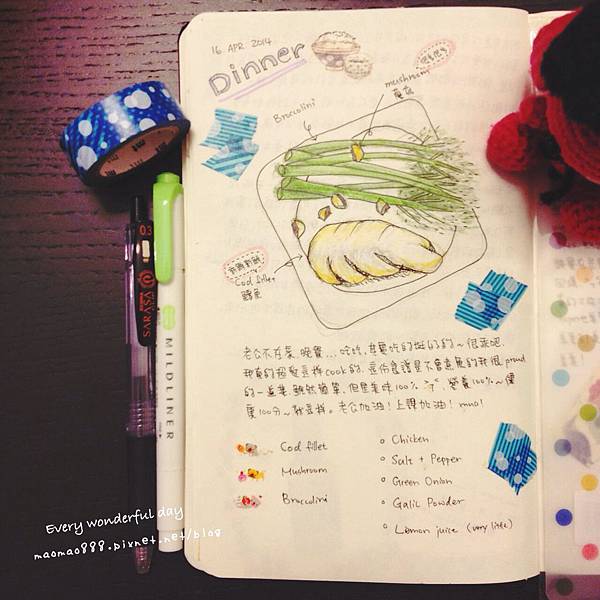 16. APR. 2014
Dinner
mushroom
蘑菇
Broccolini
Cod fillet
鱈魚
0.3
SARASA
MILDLINER
老公不在家，晚餐...哈哈，其實吃的挺好的~很乖吧，
我真的超愛這樣cook的，這份食譜是不會煮魚的我很proud
的一道菜，雖然簡單，但是美味100%，營養100%~健
康100分~就這樣。老公加油！上課加油！mua!
Cod fillet
Mushroom
Broccolini
Chicken
Salt + Pepper
Green Onion
Galic Powder
Lemon juice (very little)
Every wonderful day
maomao888.pixnet.net/blog